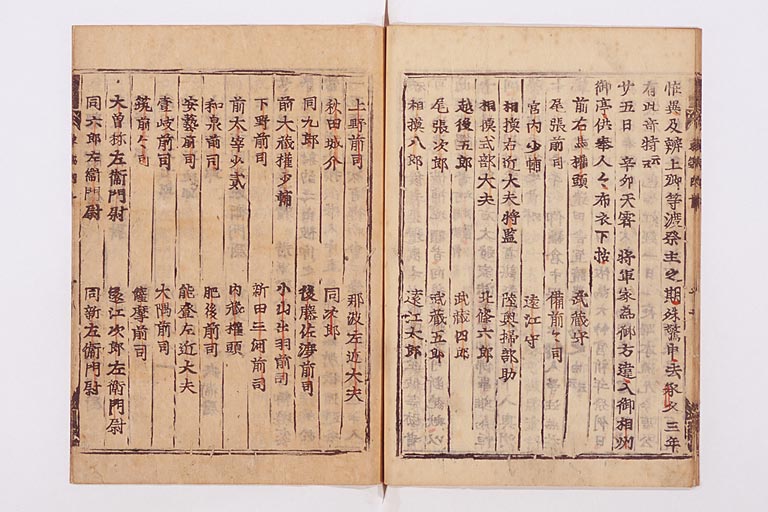 恠異及辨上卿等渡發主之期殊驚申去发文三年
有此奇特云々
廿五日 辛卯天霽 将軍家為御方違入御相州
御亭供奉人々布衣下括
前右馬權頭 武藏守
尾張前司 備前々司
宮内少輔 遠江守
相摸右近大夫将監 陸奥掃部助
相摸式部大夫 北條六郎
越後五郎 武藏四郎
尾張次郎 武藏五郎
相摸八郎 遠江太郎
上野前司 那波左近大夫
秋田城介 同次郎
同九郎 後藤佐渡前司
前大藏權少輔 小山出羽前司
下野前司 新田三河前司
前太宰少貳 内藏權頭
和泉前司 肥後前司
安藝前司 能登左近大夫
壹岐前司 大隅前司
筑前々司 薩摩前司
大曽祢左衛門尉 遠江次郎左衛門尉
同六郎左衛門尉 同新左衛門尉